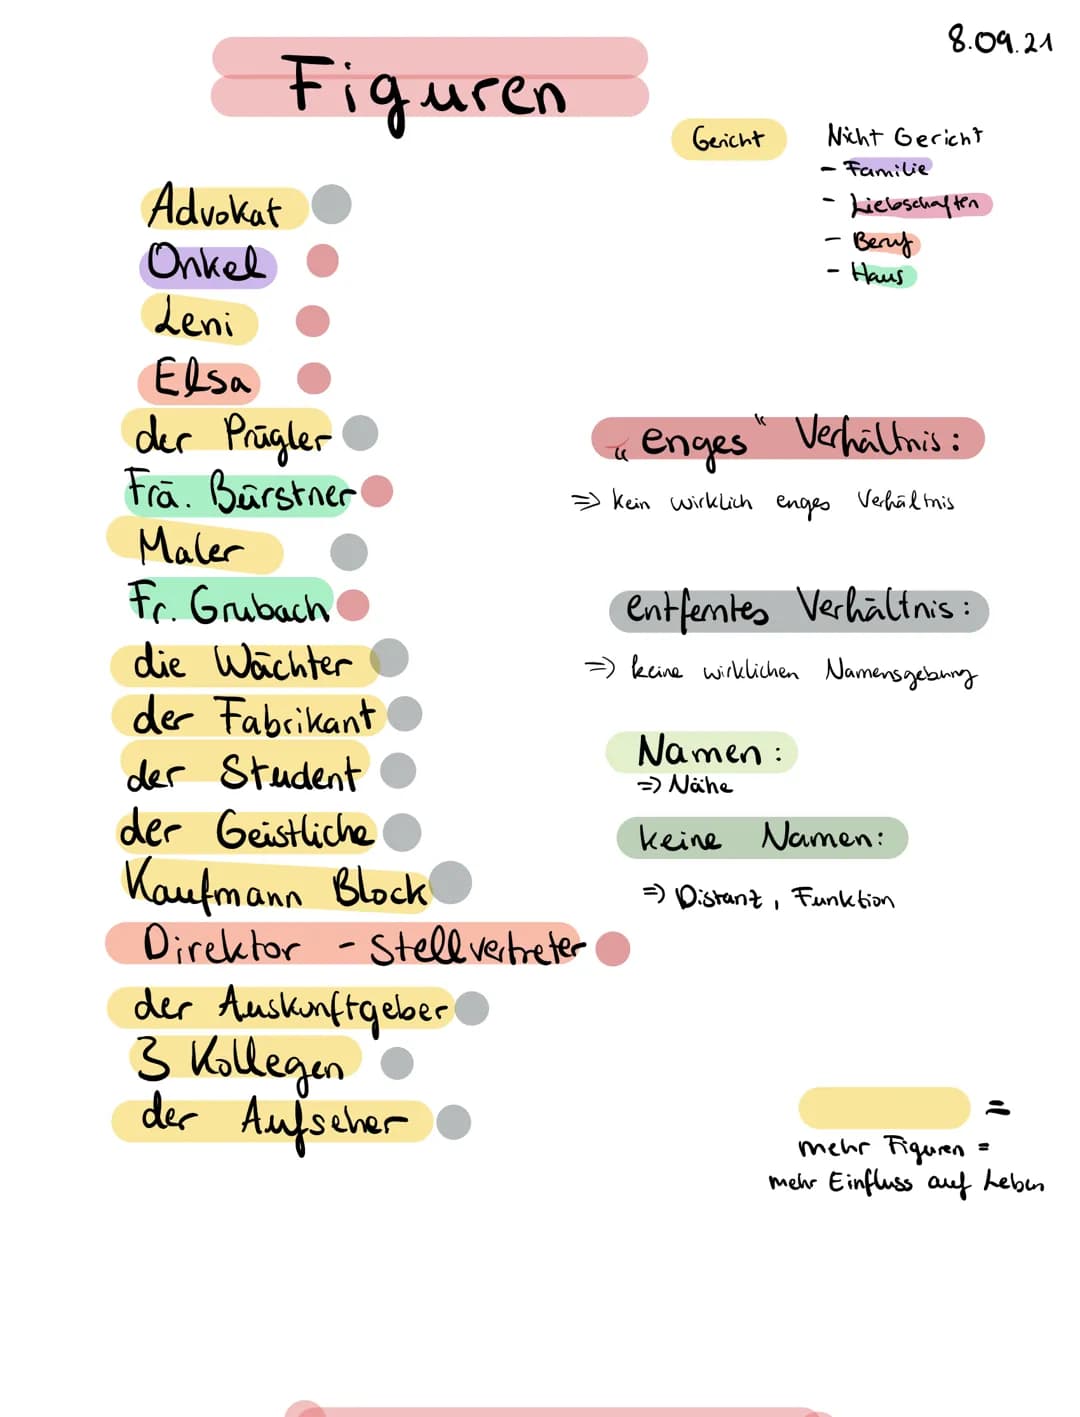 8.09.21
Figuren
Gericht
Nicht Gericht
- Familie
- Liebschaften
- Beruf
- Haus
Advokat
Onkel
Leni
Elsa
der Prügler
Frä. Bürstner
Maler
Fr. Grubach
die Wächter
der Fabrikant
der Student
der Geistliche
Kaufmann Block
Direktor - Stellvertreter
der Auskunftgeber
3 Kollegen
der Aufseher
„enges" Verhältnis:
=> kein wirklich enges Verhältnis
entferntes Verhältnis:
=> keine wirklichen Namensgebung
Namen:
=> Nähe
keine Namen:
=> Distanz, Funktion
=
mehr Figuren =
mehr Einfluss auf Leben